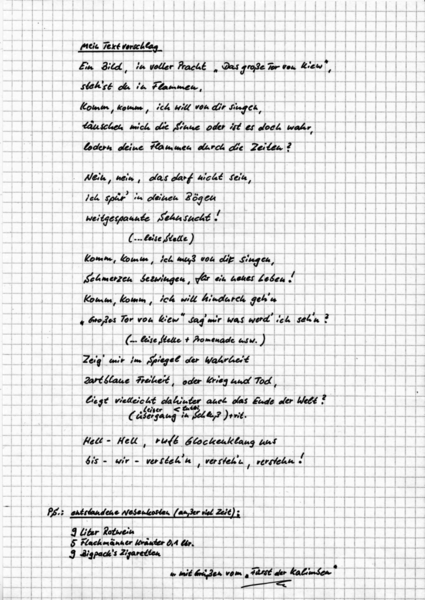 Mein Textvorschlag
Ein Bild, in voller Pracht „Das große Tor von Kiew“,
steh'st du in Flammen,
Komm, komm, ich will von dir singen,
täuschen mich die Sinne oder ist es doch wahr,
lodern deine Flammen durch die Zeiten?
Nein, nein, das darf nicht sein,
ich spür' in deinen Bögen
weitgespannte Sehnsucht!
(... leise Stelle)
Komm, Komm, ich muß von dir singen,
Schmerzen bezwingen, für ein neues Leben!
Komm, Komm, ich will hindurch geh'n
„Großes Tor von Kiew“ sag' mir was werd' ich seh'n?
(... leise Stelle + Promenade usw.)
Zeig' mir im Spiegel der Wahrheit
zartblaue Freiheit, oder Krieg und Tod,
liegt vielleicht dahinter auch das Ende der Welt?
(Übergang in Schluß) + rit.
Hell - Hell, ruft Glockenklang uns
bis - wir - versteh'n, versteh'n, verstehn!
P.S.: entstandene Nebenkosten (außer viel Zeit):
9 Liter Rotwein
5 Flachmänner Kräuter 0,1 Ltr.
9 Bigpack's Zigaretten
mit Grüßen vom „Fürst der Kalimben“